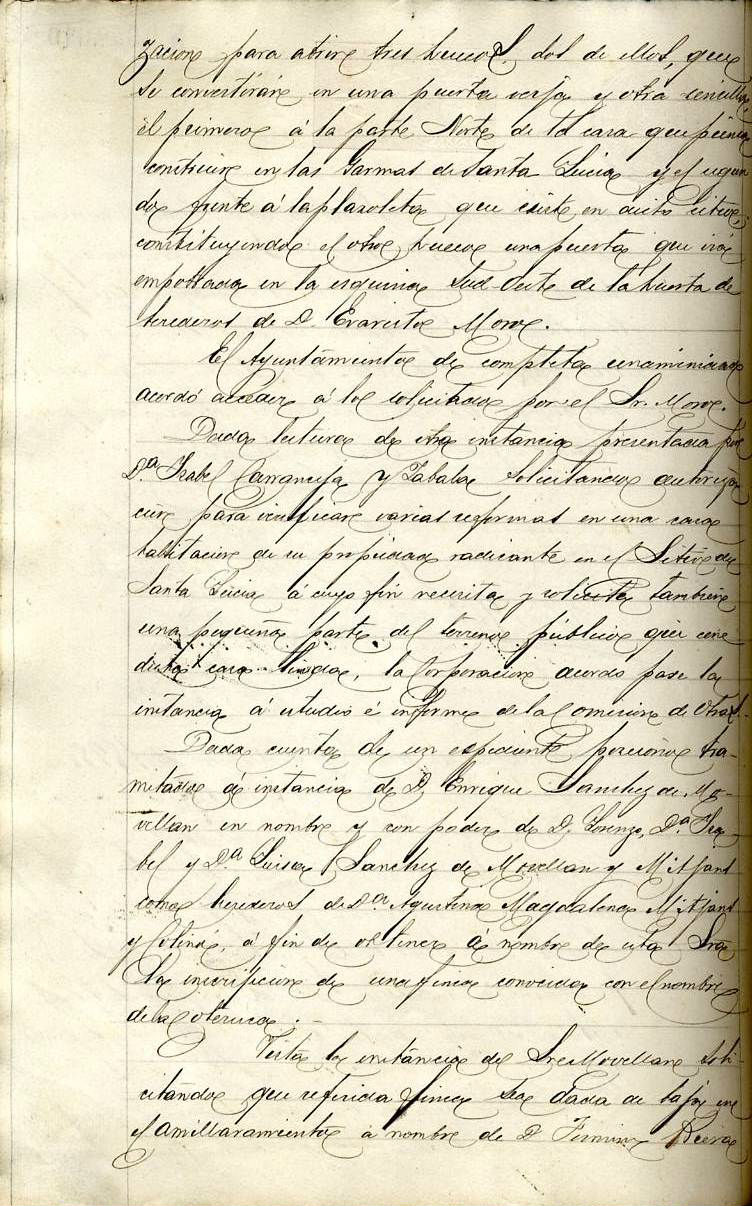 zacion para abrir tres huecos, dos de ellos, que
se convertirán en una puerta verja y otra sencilla,
el primero á la parte Norte de la casa que piensa
construir en las Garmas de Santa Lucia y el segun
do frente á la plazoleta que existe en dicho sitio,
constituyendo el otro hueco una puerta que irá
empotrada en la esquina Sud-Oeste de la huerta de
herederos de D. Evaristo Moro.
El Ayuntamiento de completa unanimidad
acordó acceder á lo solicitado por el Sr. Moro.
Dada lectura de otra instancia presentada por
D.ª Isabel Carranceja y Zabala solicitando autoriza
cion para verificar varias reformas en una casa
habitacion de su propiedad radicante en el Sitio de
Santa Lucia á cuyo fin necesita y solicita tambien
una pequeña parte del terreno público que con
dicha casa linda, la Corporacion acordó pase la
instancia á estudio é informe de la Comision de Obras.
Dada cuenta de un espediente posesorio tra-
mitado á instancia de D. Enrique Sanchez de Mo-
vellan en nombre y con poder de D. Lorenzo, D.ª Isa
bel y D.ª Luisa Sanchez de Movellan y Mitjans
como herederos de D.ª Agustina Magdalena Mitjans
y Colinó, á fin de obtener á nombre de esta Sra
la inscripcion de una finca conocida con el nombre
de la Coteruca.
Vista la instancia del Sr. Movellan soli-
citando que referida finca sea dada de baja en
el amillaramiento á nombre de D. Fermin Riera